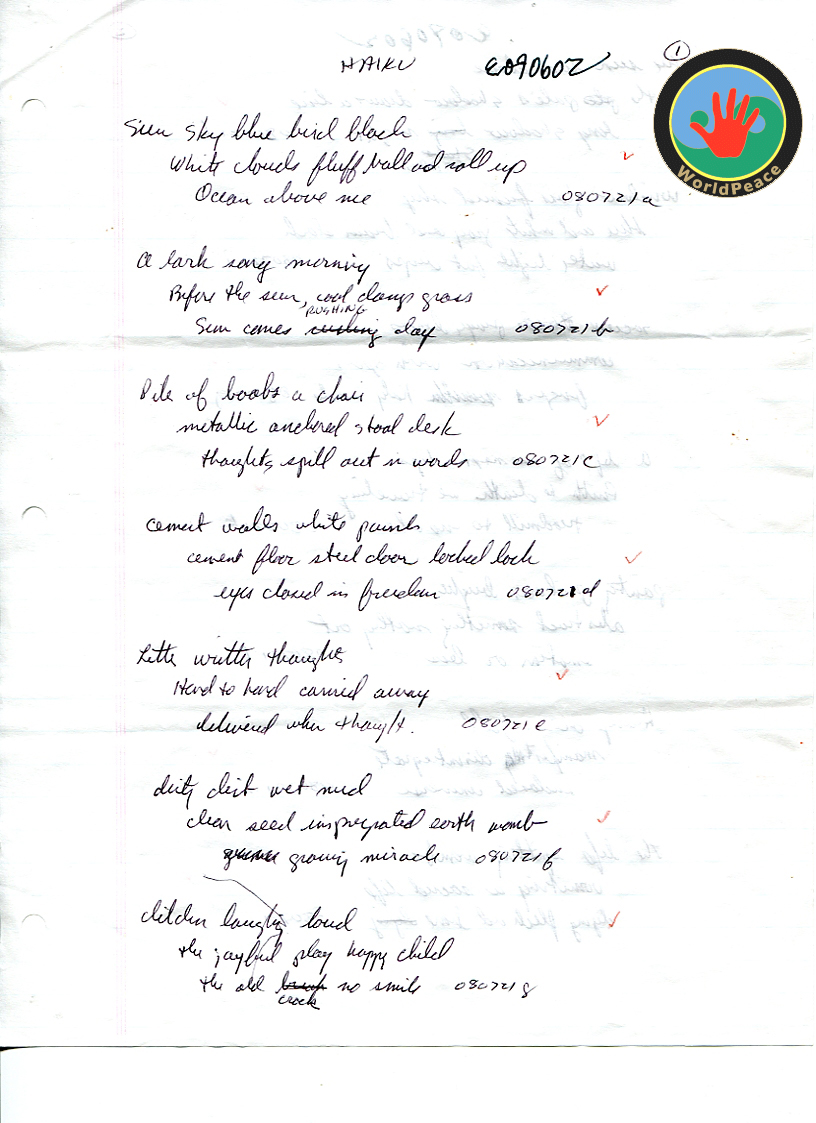 HAIKU E090602 1
WorldPeace
Sun sky blue bird black
White clouds fluff ball and roll up
Ocean above me 080721a
A lark song morning
Before the sun, cool damp grass
RUSHING
Sun comes rushing day 080721b
Pile of books a chair
metallic anchored stool desk
thoughts spill out in words 080721c
cement walls white paint
cement floor steel door locked lock
eyes closed in freedom 080721d
Letter written thoughts
Hand to hand carried away
delivered when thought. 080721e
dirty dirt wet mud
clean seed impregnated earth womb
growing miracle 080721f
children laughing loud
the joyful play happy child
the old no smile 080721g
crock